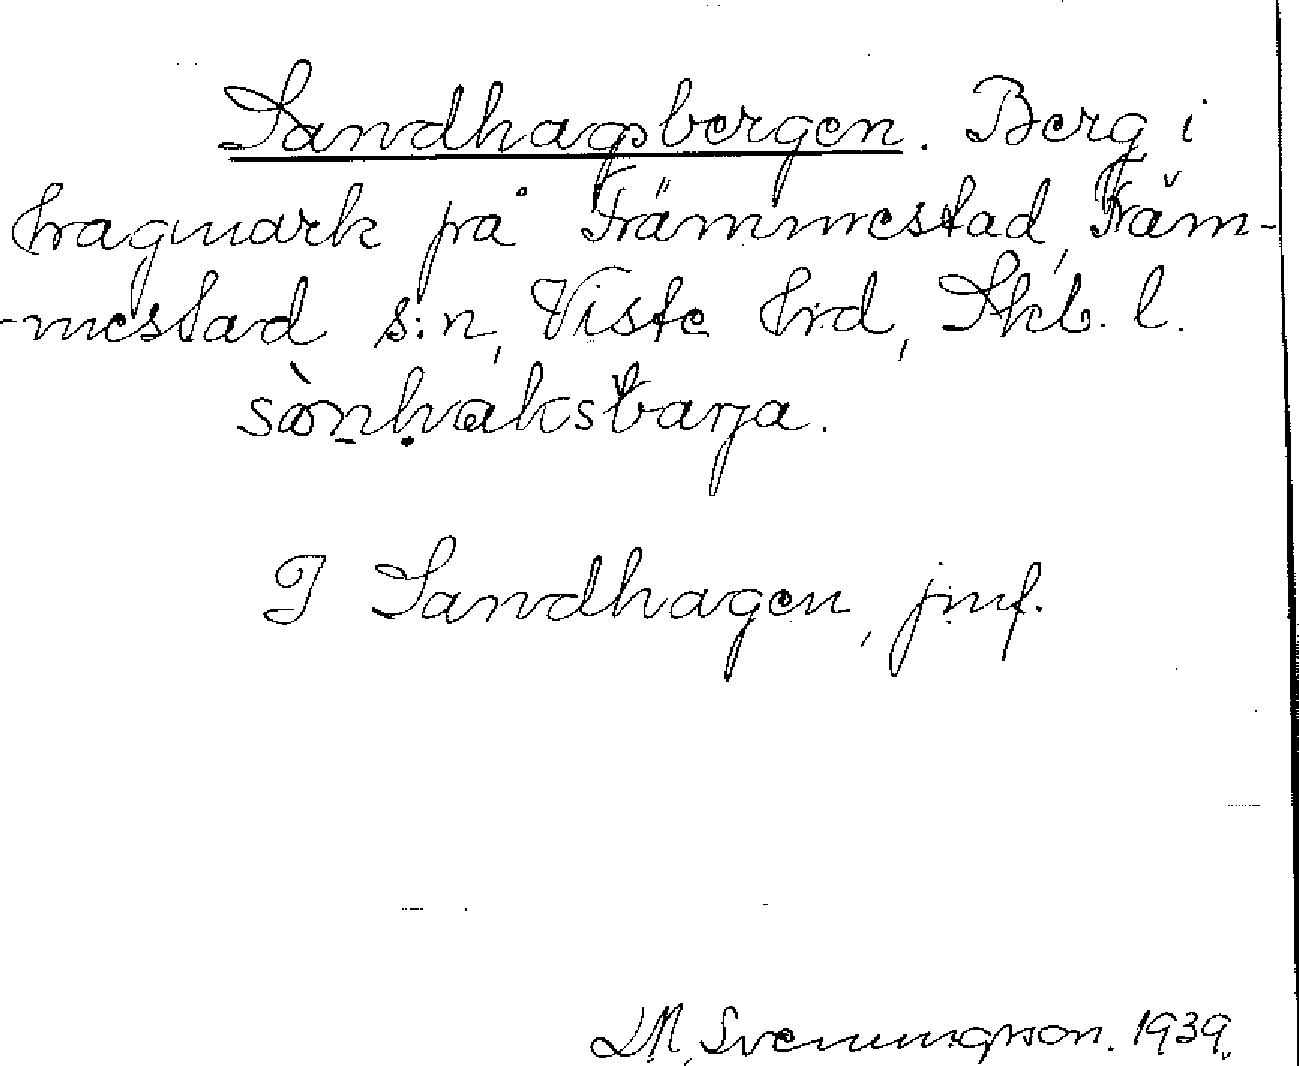 Sandhagsbergen. Berg i
hagmark på Främmestad, Främ-
-mestad s:n, Viste hrd, Skb. l.
sànhaksbarja.
I Sandhagen, jmf.
Svenningsson. 1939.